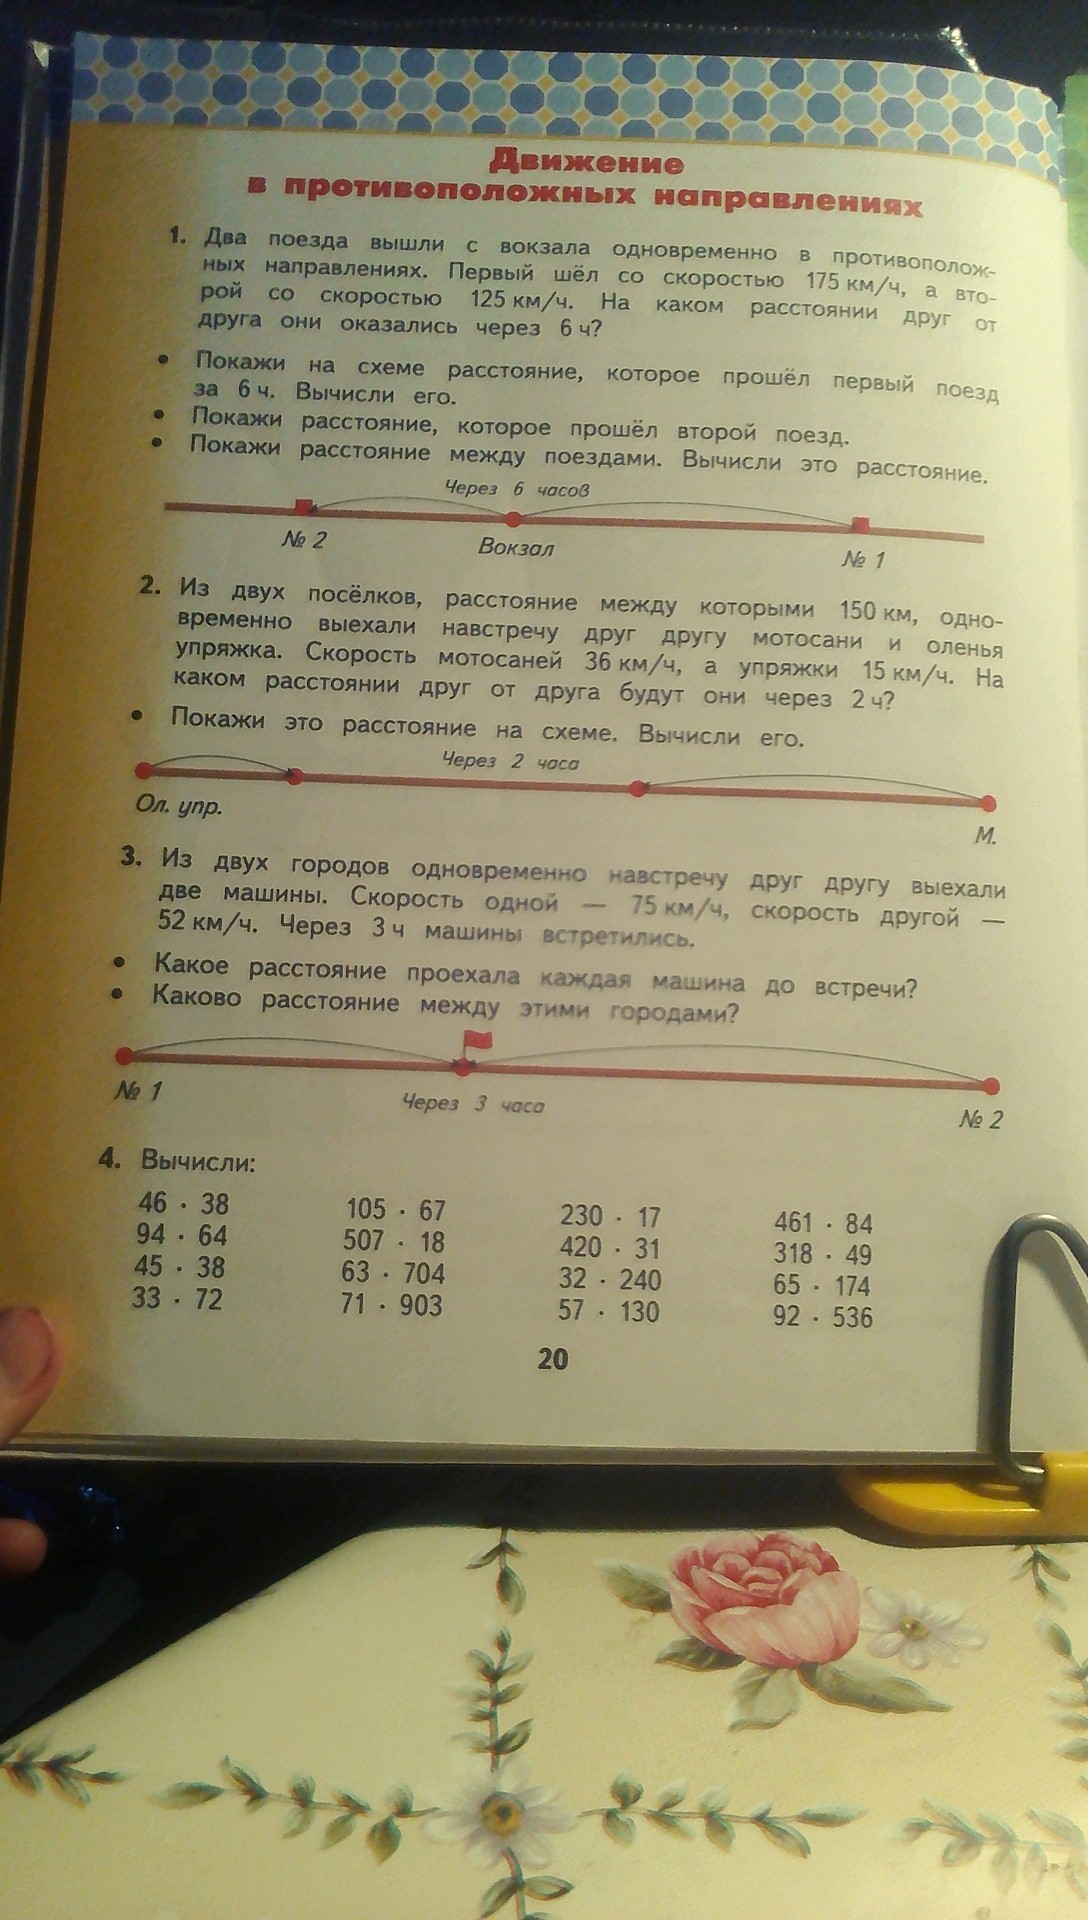 Движение
в противоположных направлениях
1. Два поезда вышли с вокзала одновременно в противополож-
ных направлениях. Первый шёл со скоростью 175 км/ч, а вто-
рой со скоростью 125 км/ч. На каком расстоянии друг от
друга они оказались через 6 ч?
• Покажи на схеме расстояние, которое прошёл первый поезд
за 6 ч. Вычисли его.
• Покажи расстояние, которое прошёл второй поезд.
• Покажи расстояние между поездами. Вычисли это расстояние.
Через 6 часов
№ 2 Вокзал № 1
2. Из двух посёлков, расстояние между которыми 150 км, одно-
временно выехали навстречу друг другу мотосани и оленья
упряжка. Скорость мотосаней 36 км/ч, а упряжки 15 км/ч. На
каком расстоянии друг от друга будут они через 2 ч?
• Покажи это расстояние на схеме. Вычисли его.
Через 2 часа
Ол. упр. М.
3. Из двух городов одновременно навстречу друг другу выехали
две машины. Скорость одной — 75 км/ч, скорость другой —
52 км/ч. Через 3 ч машины встретились.
• Какое расстояние проехала каждая машина до встречи?
• Каково расстояние между этими городами?
№ 1 Через 3 часа № 2
4. Вычисли:
46 · 38 105 · 67 230 · 17 461 · 84
94 · 64 507 · 18 420 · 31 318 · 49
45 · 38 63 · 704 32 · 240 65 · 174
33 · 72 71 · 903 57 · 130 92 · 536
20